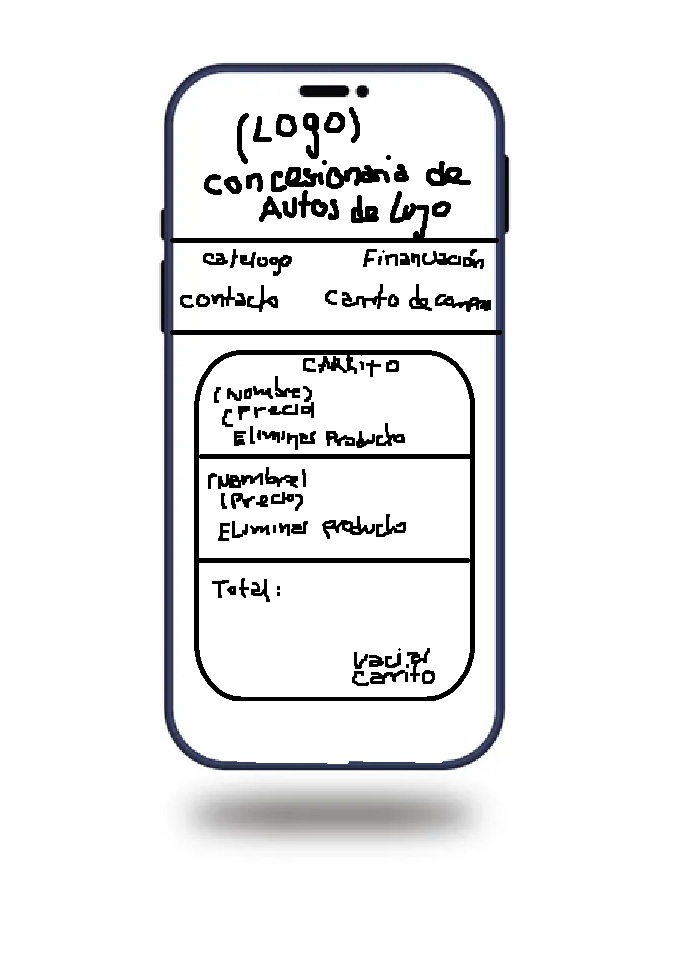 (Logo)
Concesionaria de
Autos de Lujo
catalogo Financiación
contacto Carrito de compras
CARRITO
(Nombre)
(Precio)
Eliminar Producto
(Nombre)
(Precio)
Eliminar producto
Total:
Vaciar
carrito